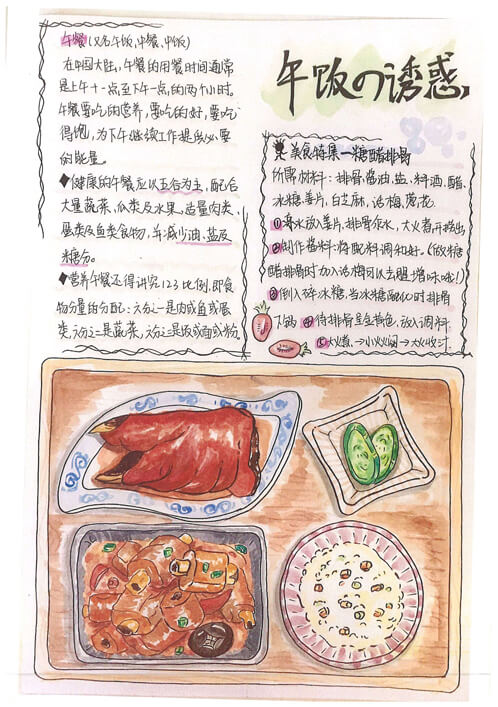 午饭の诱惑
午餐(又名午饭,中餐,中饭)
在中国大陆,午餐的用餐时间通常
是上午十一点至下午一点的两个小时。
午餐要吃的营养,要吃的好,要吃
得饱,为下午继续工作提供必要
的能量。
◆健康的午餐应以五谷为主,配合
大量蔬菜,瓜类及水果,适量肉类,
蛋类及鱼类食物,并减少油,盐及
糖分。
◆营养午餐还得讲究1:2:3比例,即食
物分量的分配:六分之一是肉或鱼或蛋
类,六分之二是蔬菜,六分之三是饭或面或粉
美食特集—糖醋排骨
所需材料:排骨,酱油,盐,料酒,醋,
冰糖,姜片,白芝麻,话梅,葱花.
①凉水放入姜片,排骨焯水,大火煮开捞出
②制作酱料:将配料调和好。(做糖
醋排骨时加入话梅可以去腥增味哦!)
③倒入碎冰糖,当冰糖融化时排骨
入锅 ④待排骨呈金黄色,放入调料
⑤大火煮→小火焖→大火收汁